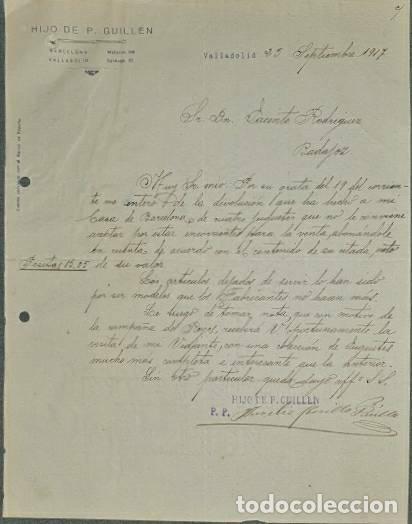 HIJO DE P. GUILLÉN
BARCELONA
VALLADOLID
Valladolid 25 Septiembre 1917
Sr. Dn. Jacinto Rodriguez
Badajoz
Muy Sr. mio: Por su grata del 19 del corrien-
te me entero de la devolución que ha hecho a mi
Casa de Barcelona, de cuatro juguetes que no le conviene
aceptar por estar inservibles para la venta, abonandole
en cuenta de acuerdo con el contenido de su citada
Pesetas 15,05 de su valor.
Los artículos dejados de servir lo han sido
por ser modelos que los Fabricantes no hacen más.
Le ruego de tomar nota, que con motivo de
la campaña de Reyes, recibirá V. oportunamente la
visita de mi Viajante, con una colección de Juguetes
mucho mas completa e interesante que la anterior.
Sin otro particular queda suyo affº S.S.
HIJO DE P. GUILLÉN
P. P.
todocoleccion.net